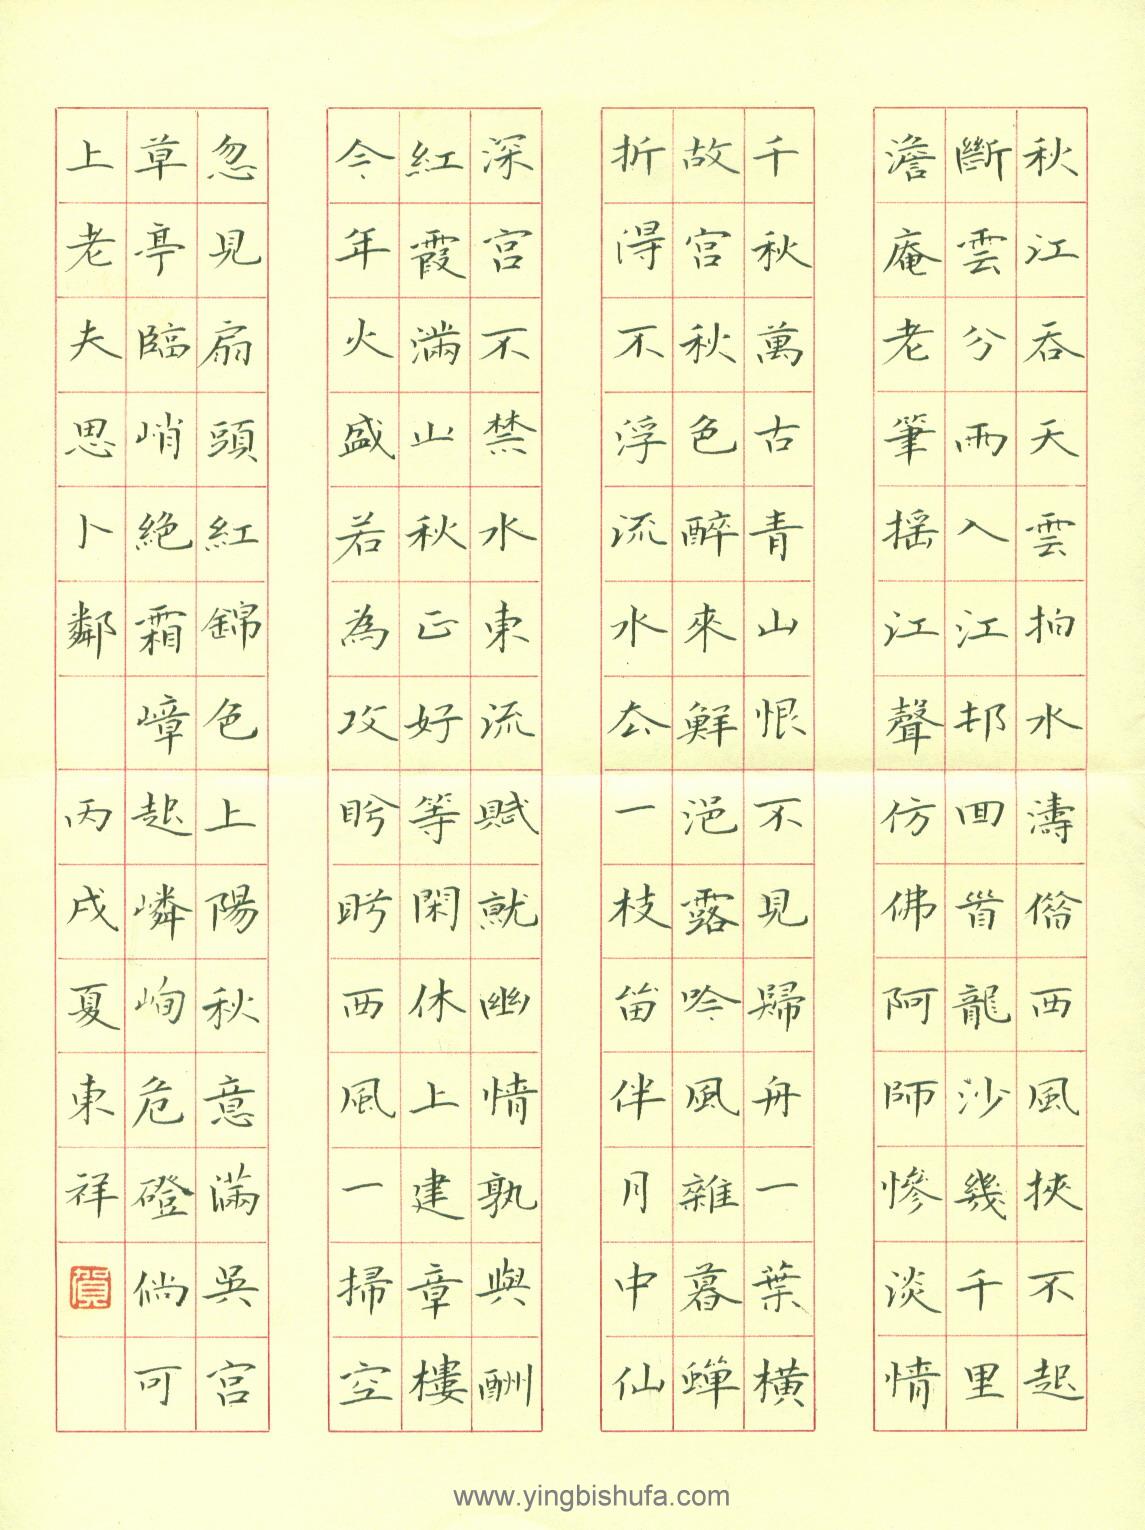 秋江吞天雲拍水濤借西風挾不起
斷雲分雨入江邨回首龍沙幾千里
澹庵老筆摇江聲仿佛阿師慘淡情
千秋萬古青山恨不見歸舟一葉橫
故宫秋色醉來鮮浥露吟風雜暮蟬
折得不浮流水去一枝笛伴月中仙
深宫不禁水東流賦就幽情孰與酬
紅霞滿山秋正好等閑休上建章樓
今年火盛若為攻盻盻西風一掃空
忽見扇頭紅錦色上陽秋意滿吳宫
草亭臨峭絶霜嶂起嶙峋危磴倘可
上老夫思卜鄰 丙戌夏東祥
賀
www.yingbishufa.com